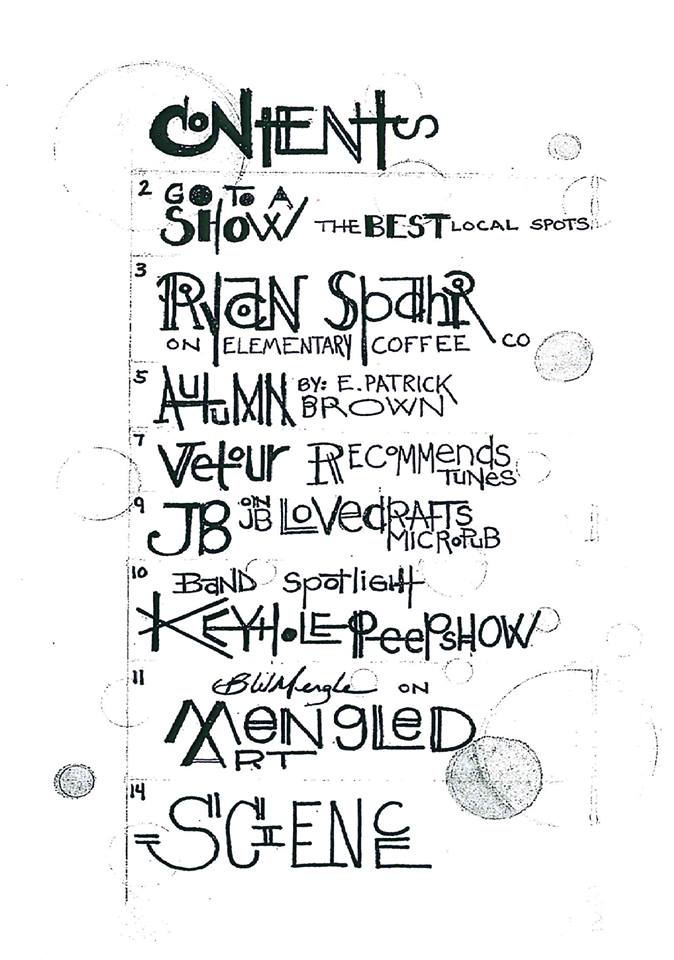 CONTENTS
2 GO TO A
SHOW THE BEST LOCAL SPOTS.
3 RyaN SpahR
ON ELEMENTARY COFFEE CO
5 AUTUMN BY: E. PATRICK
BROWN
7 Vetour RECOMMENDS
TUNES
9 JB ON
JB LOVEdRAFTS
MICROPUB
10 BAND Spotlight
KEYHOLE PeepSHOW
11 BWMengle ON
MENGLED
ART
14 SCIENCE